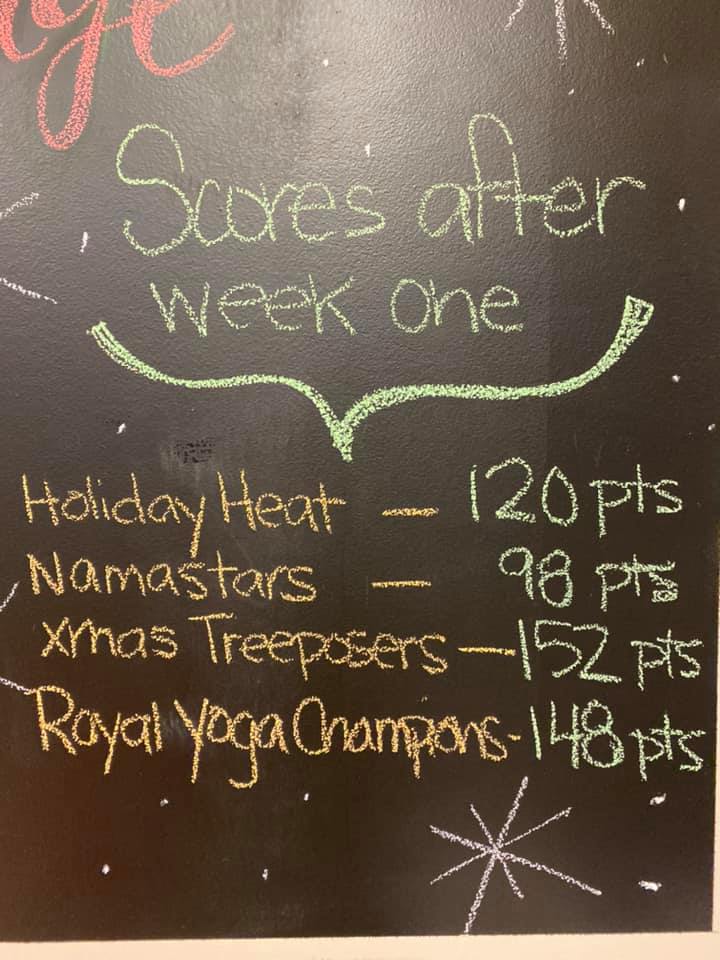 Scores after
week one
Holiday Heat — 120 pts
Namastars — 98 pts
xmas Treeposers — 152 pts
Royal Yoga Champions - 148 pts